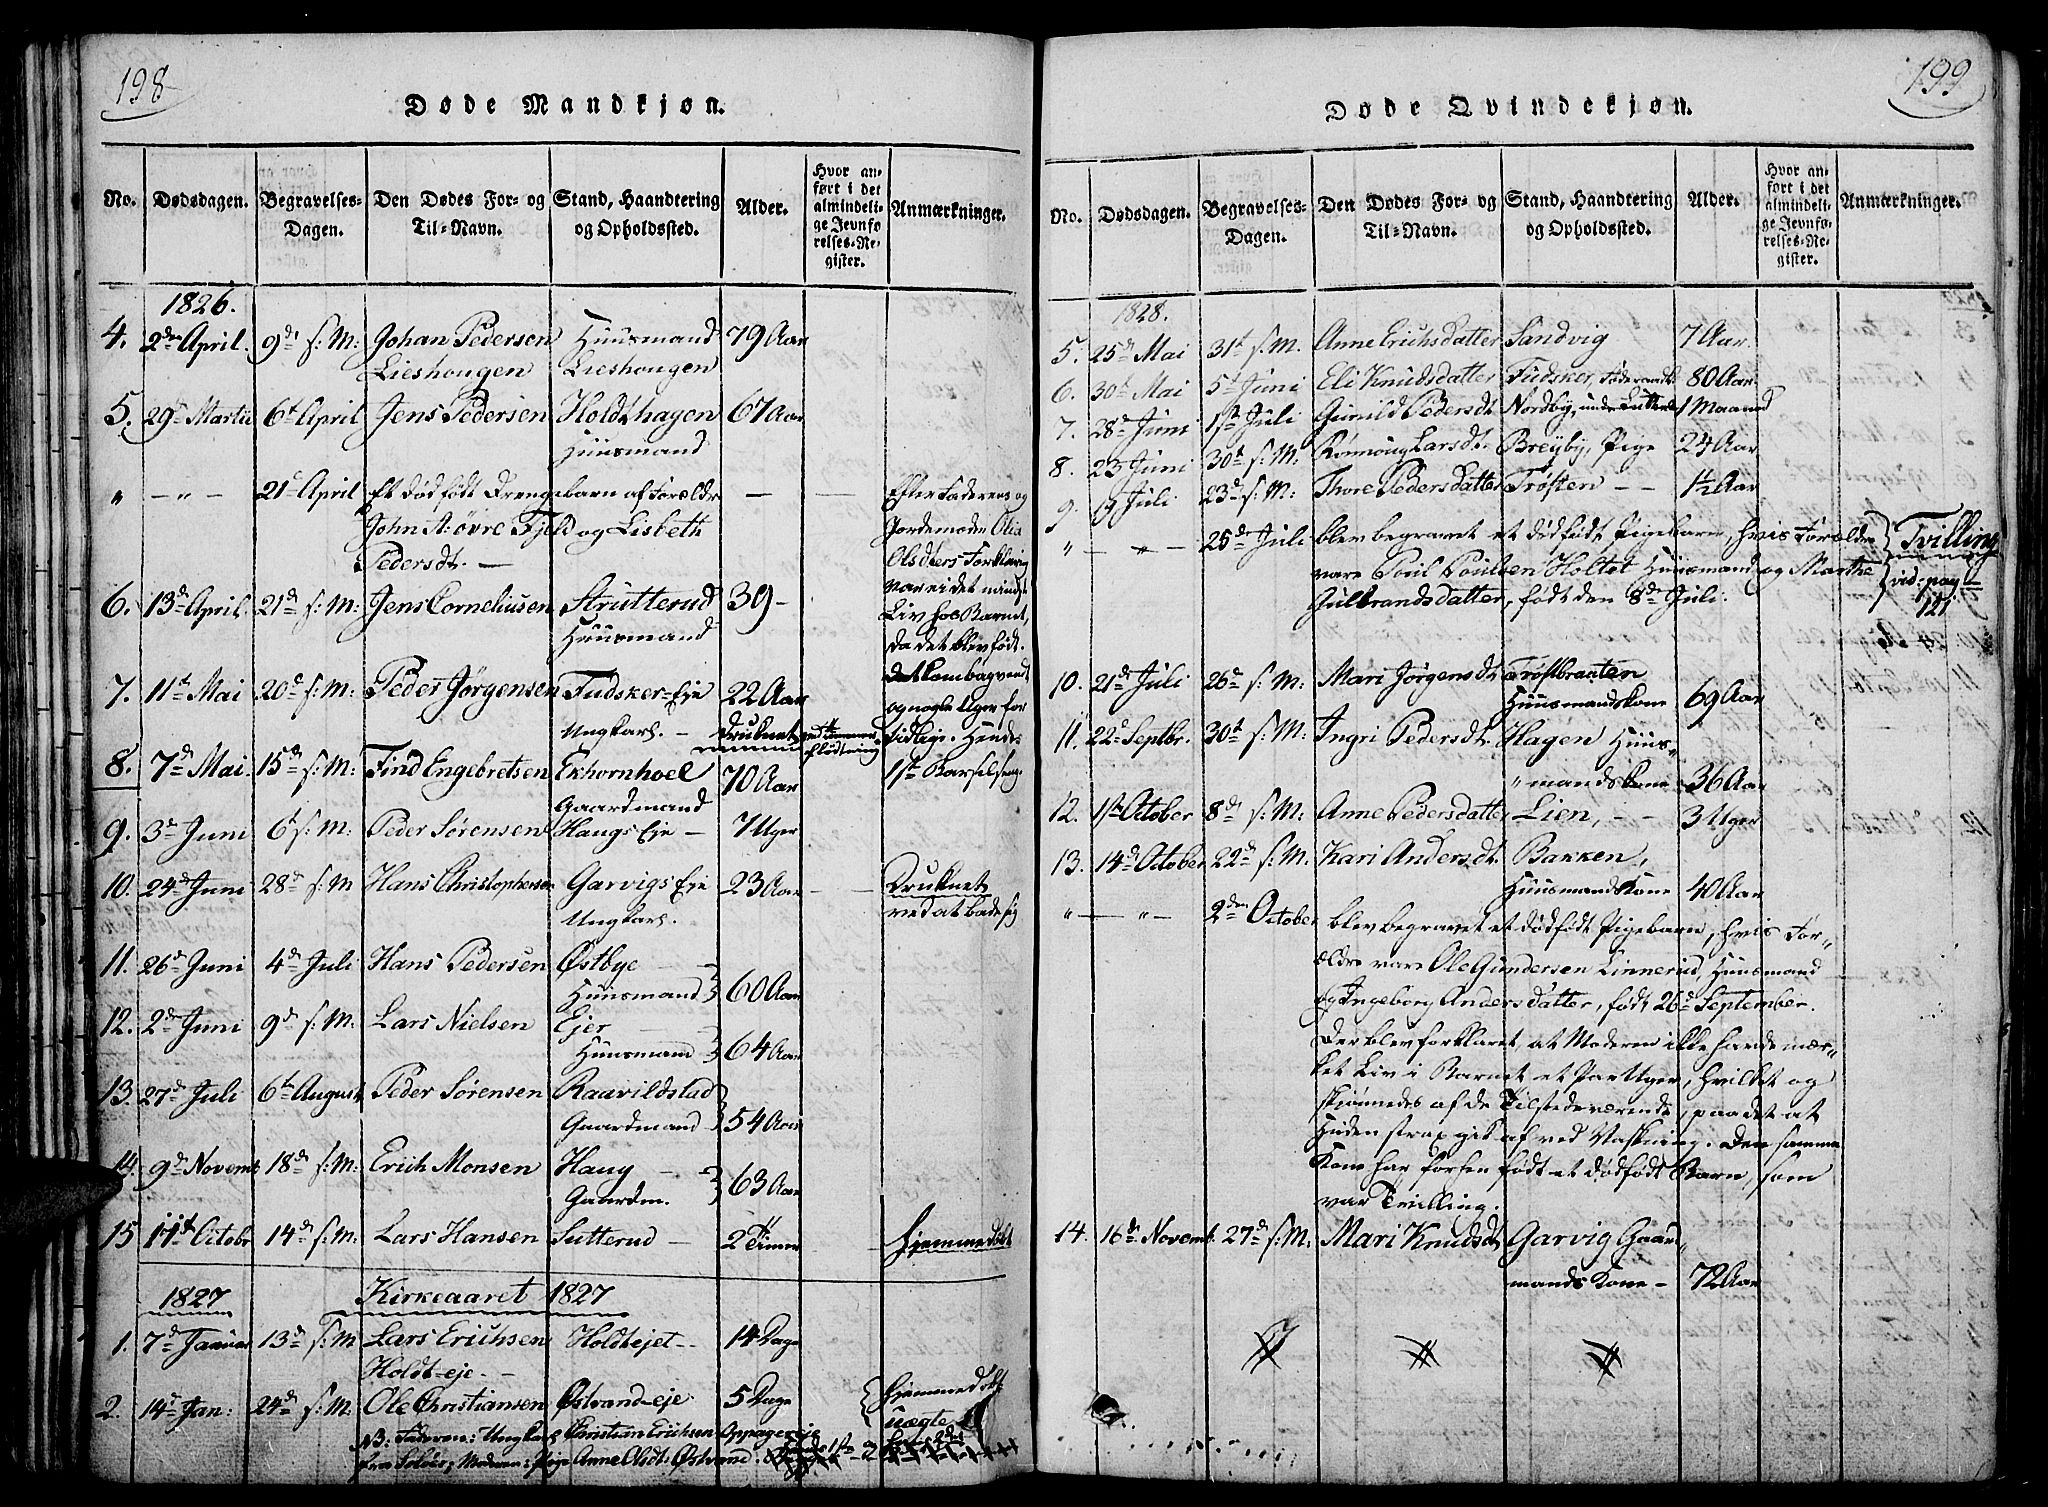 198
Døde Mandkjøn.
No. Dødsdagen. Begravelses-Dagen. Den Dødes For- og Til-Navn. Stand, Haandtering og Opholdssted. Alder. Hvor anført i det almindelige Jevnførelses-Register. Anmærkninger.
1826.
4. 2den April. 9de s: M: Johan Pedersen Huusmand 79 Aar
Lieshougen Lieshougen
5. 29de Martii 6te April Jens Pedersen Holdthagen 67 Aar
Huusmand
" — " — 21de April Et dødfødt Drengebarn af Forældre — — Efter Faderens og
John A: øvre Fjeld og Lisbeth Jordemoder Olia
Pedersdt. — Olsdters Forklaring
var ei det mindste
6. 13de April. 21de s: M: Jens Corneliusen Strutterud 39 – Liv hos Barnet,
Huusmand da det blev født.
7. 11te Mai 20de s: M: Peder Jørgensen Fudsker-Eje 22 Aar Det kom bagvendt
Ungkarl. – Druknet ved Tømmerflødtning og nogle Uger for
8. 7de Mai. 15de s: M: Find Engebretsen Ekhornhoel 70 Aar tidlig. Hendes
Gaardmand 1ste Barselseng.
9. 3de Juni 6te s: M: Peder Sørensen Haugs Eje – 7 Uger
10. 24de Juni 28de s: M Hans Christophersen Garvigs Eje 23 Aar — Druknet
Ungkarl. ved at bade sig
11. 26de Juni 4de Juli Hans Pedersen Østbye
Huusmand 60 Aar
12. 2de Juni 9de s: M: Lars Nielsen Ejer
Huusmand 64 Aar
13. 27de Juli 6te August Peder Sørensen Raavildstad
Gaardmand 54 Aar
14. 9de Novemb 18de s: M: Erich Monsen Haug
Gaardm. 63 Aar
15 11te Octobr 14de s: M: Lars Hansen Sutterud – 2 Timer — hjemmedøbt
1827 Kirkeaaret 1827
1. 7de Januar 13de s: M Lars Erichsen Holdtejet – 14 Dage
Holdt-eje. –
2. 14de Jan: 24de s: M: Ole Christiansen Østvand-eje 5 Dage hjemmedøbt
uægte
NB: Faderen: Ungkarl Christian Erichsen
fra Soløer; Moderen: Pige Anne Olsdt: Østvand.
199
Døde Qvindekjøn.
No. Dødsdagen. Begravelses-Dagen. Den Dødes For- og Til-Navn. Stand, Haandtering og Opholdssted. Alder. Hvor anført i det almindelige Jevnførelses-Register. Anmærkninger.
1828.
5. 25de Mai 31te s: M. Anne Erichsdatter Sandvig 7 Aar.
6. 30te Mai 5te Juni Eli Knudsdatter Fudsker, Føderaadsk. 80 Aar
7. 28de Juni 1ste Juli Gunild Pedersdt. Nordby, under 1 Maaned
8. 23 Juni 30te s: M: Rønnoug Larsdt. Breyby, Pige 24 Aar
9. 19 Juli 23de s: M: Thore Pedersdatter Trøften — — 1½ Aar
" — " — 25de Juli blev begravet et dødfødt Pigebarn, hvis Forældre Tvilling
vare Poul Poulsen Holtet Huusmand og Marthe vid: pag
Gulbrandsdatter, født den 8de Juli. 121
10. 21de Juli 26de s: M: Mari Jørgensdt. Trøftbraaten
Huusmandskone 69 Aar
11. 22de Septbr. 30te s: M: Ingri Pedersdt. Hagen Huus-
"mandskone 36 Aar
12. 1ste October 8de s: M: Anne Pedersdatter Lien, – – 3 Uger
13. 14de October 22de s: M. Kari Andersdt. Bakken,
Huusmandskone 40 Aar
" — " — 2den October blev begravet et dødfødt Pigebarn, hvis For-
ældre vare Ole Gundersen Linnerud, Huusmand
og Ingeborg Andersdatter, født 26de September.
Der blev forklaret, at Moderen ikke havde mær-
ket Liv i Barnet et Par Uger, hvilket og
skjønnedes af de Tilstedeværende, paa det at
Huden strax gik af ved Vaskning. Den samme
Kone har forhen født et dødfødt Barn, som
var Tvilling.
14. 16de Novemb. 27de s: M: Mari Knudsdt Garvig Gaard
mands Kone – 72 Aar